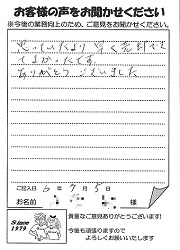 お客様の声をお聞かせください
※今後の業務向上のため、ご意見をお聞かせください。
思っていたより早く売却できて
よかったです。
ありがとうございました
ご記入日 6年7月5日
お名前 様
貴重なご意見ありがとうございます!
今後も頑張りますので
よろしくお願いいたします
Since
1979